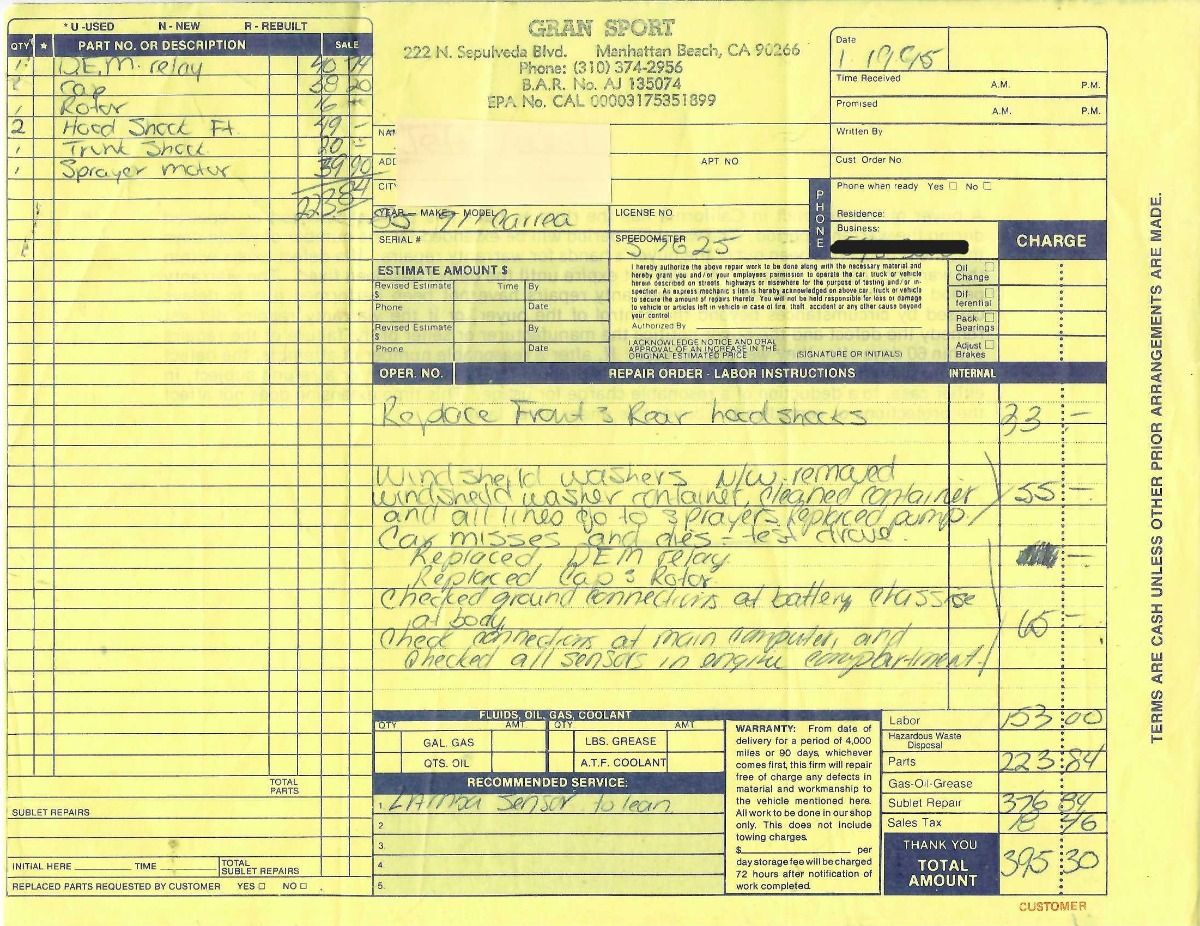 * U -USED N - NEW R - REBUILT
QTY * PART NO. OR DESCRIPTION SALE
1 D.E.M. relay 40 74
1 Cap 58 20
1 Rotor 16 –
2 Hood Shock Ft. 49 –
1 Trunk Shock 20 –
1 Sprayer motor 39 90
223 84
TOTAL PARTS
SUBLET REPAIRS
INITIAL HERE TIME TOTAL SUBLET REPAIRS
REPLACED PARTS REQUESTED BY CUSTOMER YES NO
GRAN SPORT
222 N. Sepulveda Blvd. Manhattan Beach, CA 90266
Phone: (310) 374-2956
B.A.R. No. AJ 135074
EPA No. CAL 00003175351899
Date
Time Received A.M. P.M.
Promised A.M. P.M.
Written By
Cust. Order No.
NAM
ADD APT NO
CITY
PHONE
Phone when ready Yes No
Residence:
Business:
YEAR - MAKE - MODEL LICENSE NO.
911 Carrea
SERIAL # SPEEDOMETER
ESTIMATE AMOUNT $
Revised Estimate $ Time By
Phone Date
Revised Estimate $ By
Phone Date
I hereby authorize the above repair work to be done along with the necessary material and
hereby grant you and/or your employees permission to operate the car, truck or vehicle
herein described on streets, highways or elsewhere for the purpose of testing and/or in-
spection. An express mechanic s lien is hereby acknowledged on above car, truck or vehicle
to secure the amount of repairs thereto. You will not be held responsible for loss or damage
to vehicle or articles left in vehicle in case of fire, theft, accident or any other cause beyond
your control
Authorized By
I ACKNOWLEDGE NOTICE AND ORAL
APPROVAL OF AN INCREASE IN THE
ORIGINAL ESTIMATED PRICE (SIGNATURE OR INITIALS)
CHARGE
Oil Change
Dif- ferential
Pack Bearings
Adjust Brakes
OPER. NO. REPAIR ORDER - LABOR INSTRUCTIONS INTERNAL
Replace Front & Rear hood shocks 33 –
Windsheild washers N/W. removed
windsheild washer container, cleaned container 55 –
and all lines go to sprayers. Replaced pump.
Car misses and dies - test drove.
Replaced DEM relay
Replaced Cap & Rotor
Checked ground connections at battery, chassise
at body 65 –
Check connections at main computer, and
Checked all sensors in engine compartment.
FLUIDS, OIL, GAS, COOLANT
QTY AMT. QTY AMT.
GAL. GAS LBS. GREASE
QTS. OIL A.T.F. COOLANT
RECOMMENDED SERVICE:
1. LAmba Sensor to lean
2
3.
4.
5.
WARRANTY: From date of
delivery for a period of 4,000
miles or 90 days, whichever
comes first, this firm will repair
free of charge any defects in
material and workmanship to
the vehicle mentioned here.
All work to be done in our shop
only. This does not include
towing charges.
$ per
day storage fee will be charged
72 hours after notification of
work completed.
Labor 153 00
Hazardous Waste Disposal
Parts 223 84
Gas-Oil-Grease
Sublet Repair 376 84
Sales Tax 18 46
THANK YOU
TOTAL AMOUNT 395 30
CUSTOMER
TERMS ARE CASH UNLESS OTHER PRIOR ARRANGEMENTS ARE MADE.